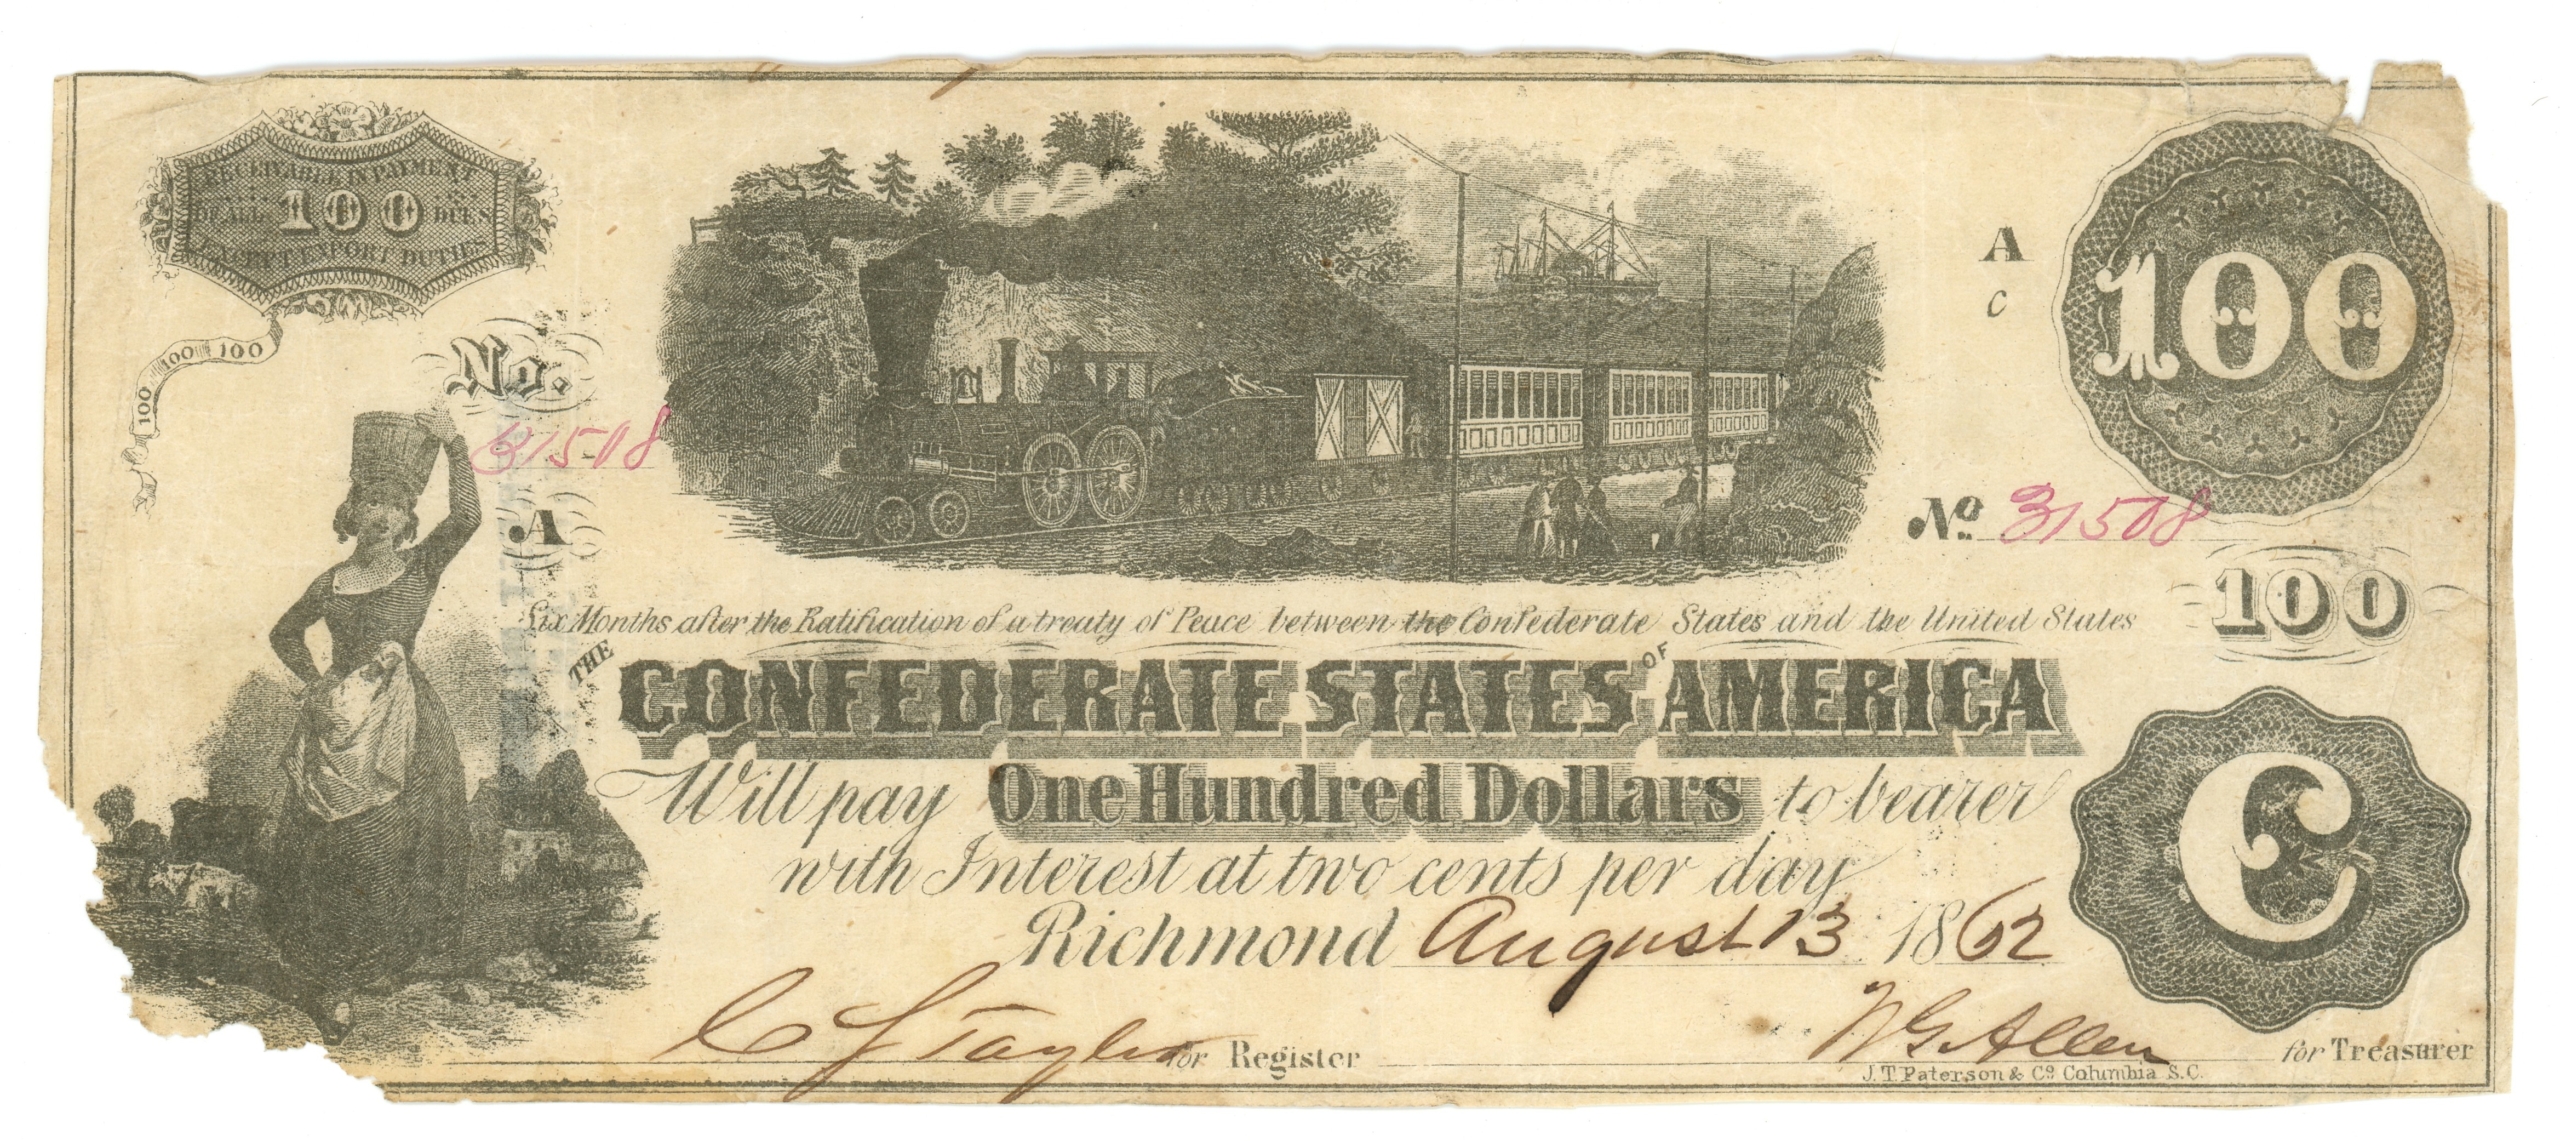 RECEIVABLE IN PAYMENT
OF ALL 100 DUES
EXCEPT EXPORT DUTIES
100 100 100
No.
31508
A
A
C
100
No 31508
100
Six Months after the Ratification of a treaty of Peace between the Confederate States and the United States
THE CONFEDERATE STATES OF AMERICA
Will pay One Hundred Dollars to bearer
with Interest at two cents per day
Richmond August 13 1862
C
C J Taylor for Register
W G Allen for Treasurer
J. T. Paterson & Co Columbia S.C.